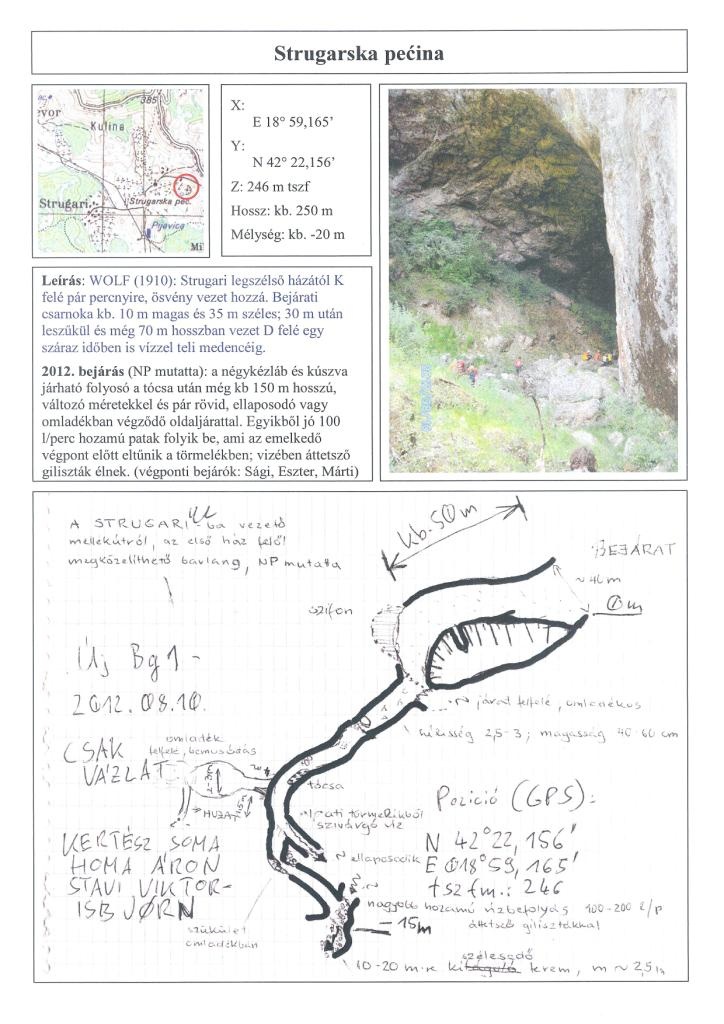 Strugarska pećina
385
Kulina
Strugari
Strugarska peć.
Pijavica
Mi
X:
E 18° 59,165’
Y:
N 42° 22,156’
Z: 246 m tszf
Hossz: kb. 250 m
Mélység: kb. -20 m
Leírás: WOLF (1910): Strugari legszélső házától K
felé pár percnyire, ösvény vezet hozzá. Bejárati
csarnoka kb. 10 m magas és 35 m széles; 30 m után
leszűkül és még 70 m hosszban vezet D felé egy
száraz időben is vízzel teli medencéig.
2012. bejárás (NP mutatta): a négykézláb és kúszva
járható folyosó a tócsa után még kb 150 m hosszú,
változó méretekkel és pár rövid, ellaposodó vagy
omladékban végződő oldaljárattal. Egyikből jó 100
l/perc hozamú patak folyik be, ami az emelkedő
végpont előtt eltűnik a törmelékben; vizében áttetsző
giliszták élnek. (végponti bejárók: Sági, Eszter, Márti)
A STRUGARI-ba vezető
mellékútról, az első ház felől
megközelíthető barlang, NP mutatta
kb. 50m
BEJÁRAT
~40m
0m
szifon
Új Bg1-
2012.08.10.
járat felfelé, omladékos
szélesség 2,5-3; magasság 40-60 cm
CSAK
VÁZLAT
omladék
felfelé, bemászás
tócsa
HUZAT
szivárgó víz
Pozició (GPS):
N 42°22,156'
E 018°59,165'
tszfm.: 246
KERTÉSZ SOMA
HOMA ÁRON
STAVI VIKTOR-
ISBJØRN
ellaposodik
nagyobb hozamú vízbefolyás 100-200 l/p
áttetsző gilisztákkal
szűkület
omladékban
-15m
szélesedő
10-20 m-re kitáguló terem, m ~ 2,5m